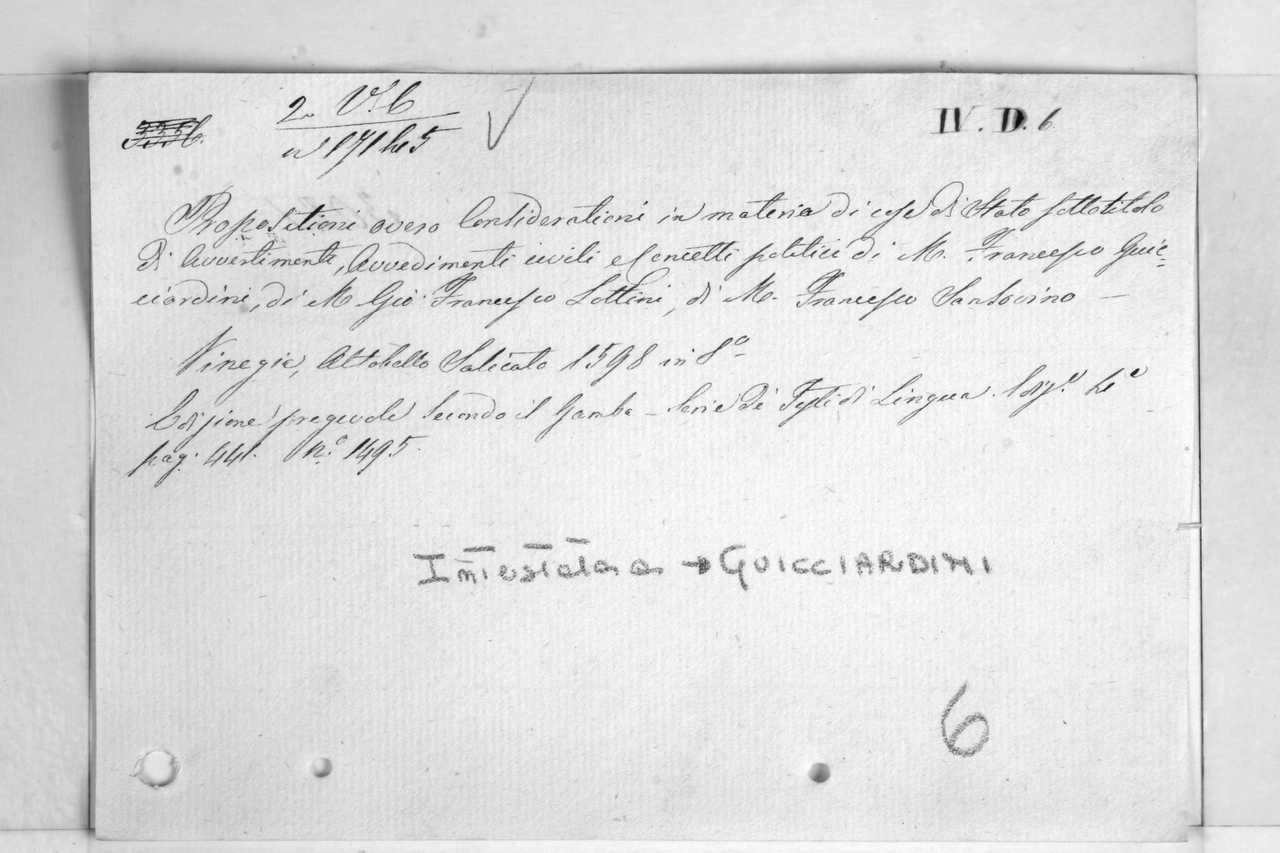 2. V. 6
IV. D. 6
Propositioni overo Considerationi in materia di cose di Stato sottotitolo
di Avvertimenti, Avvedimenti civili e Concetti politici di M. Francesco Guic=
ciardini, di M Gio Francesco Lottini, di M. Francesco Sansovino —
Vinegia, Altobello Salicato 1598 in 8º
Edizione pregevole secondo il Gamba - Serie dé Testi di Lingua
pag. 441. nº 1495.
Intestata a → GUICCIARDINI
6